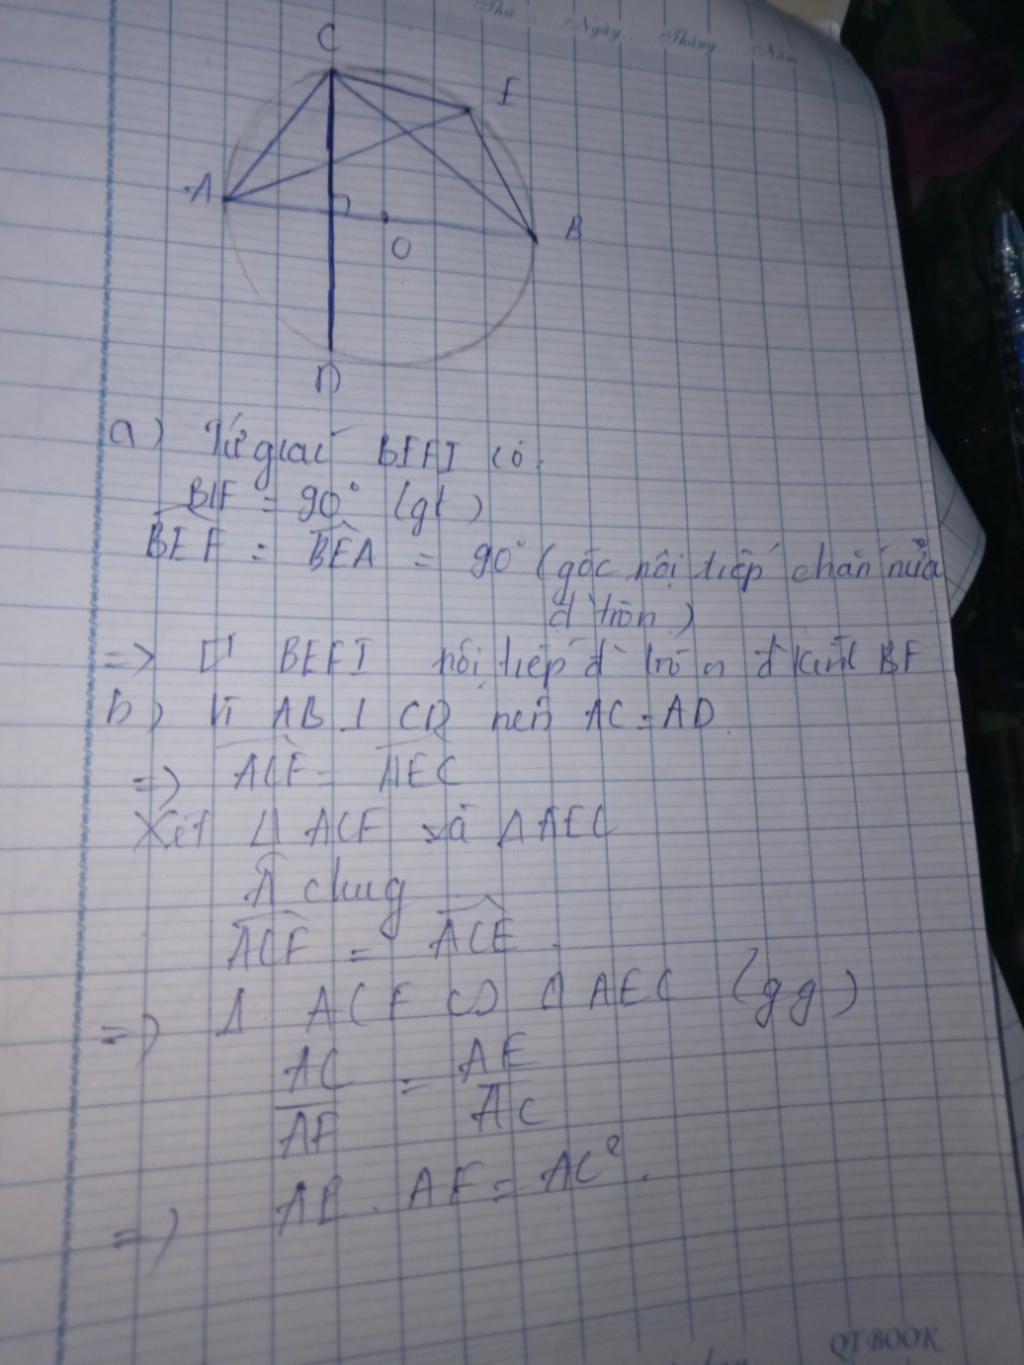 Thứ......Ngày......Tháng......Năm
C
I
A
O
B
D
a) Tứ giác BEFI có:
BIF = 90° (gt)
BEF = BEA = 90° (góc nội tiếp chắn nửa
đ tròn)
=> BEFI nội tiếp đ tròn đ kính BF
b) Vì AB ⊥ CD nên AC = AD
=> ACF = AEC
Xét Δ ACF và Δ AEC
A chug
ACF = ACE.
=> Δ ACF ∽ Δ AEC (gg)
AC = AE
AF AC
=> AE . AF = AC².
QT BOOK